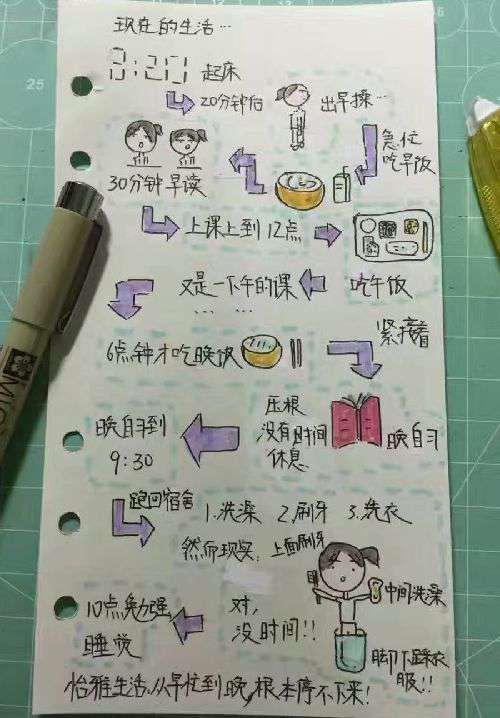 现在的生活…
3:20 起床
20分钟后 出早操…
急忙
吃早饭
30分钟早读
上课上到12点
吃午饭
又是一下午的课
… …
6点钟才吃晚饭
紧接着
晚自习
压根
没有时间
休息
晚自习到
9:30
跑回宿舍
1.洗澡 2.刷牙 3.洗衣
然而现实,上面刷牙
中间洗澡
脚下踩衣
服!!
对,
没时间!!
10点勉强
睡觉
怡雅生活,从早忙到晚,根本停不下来!
25